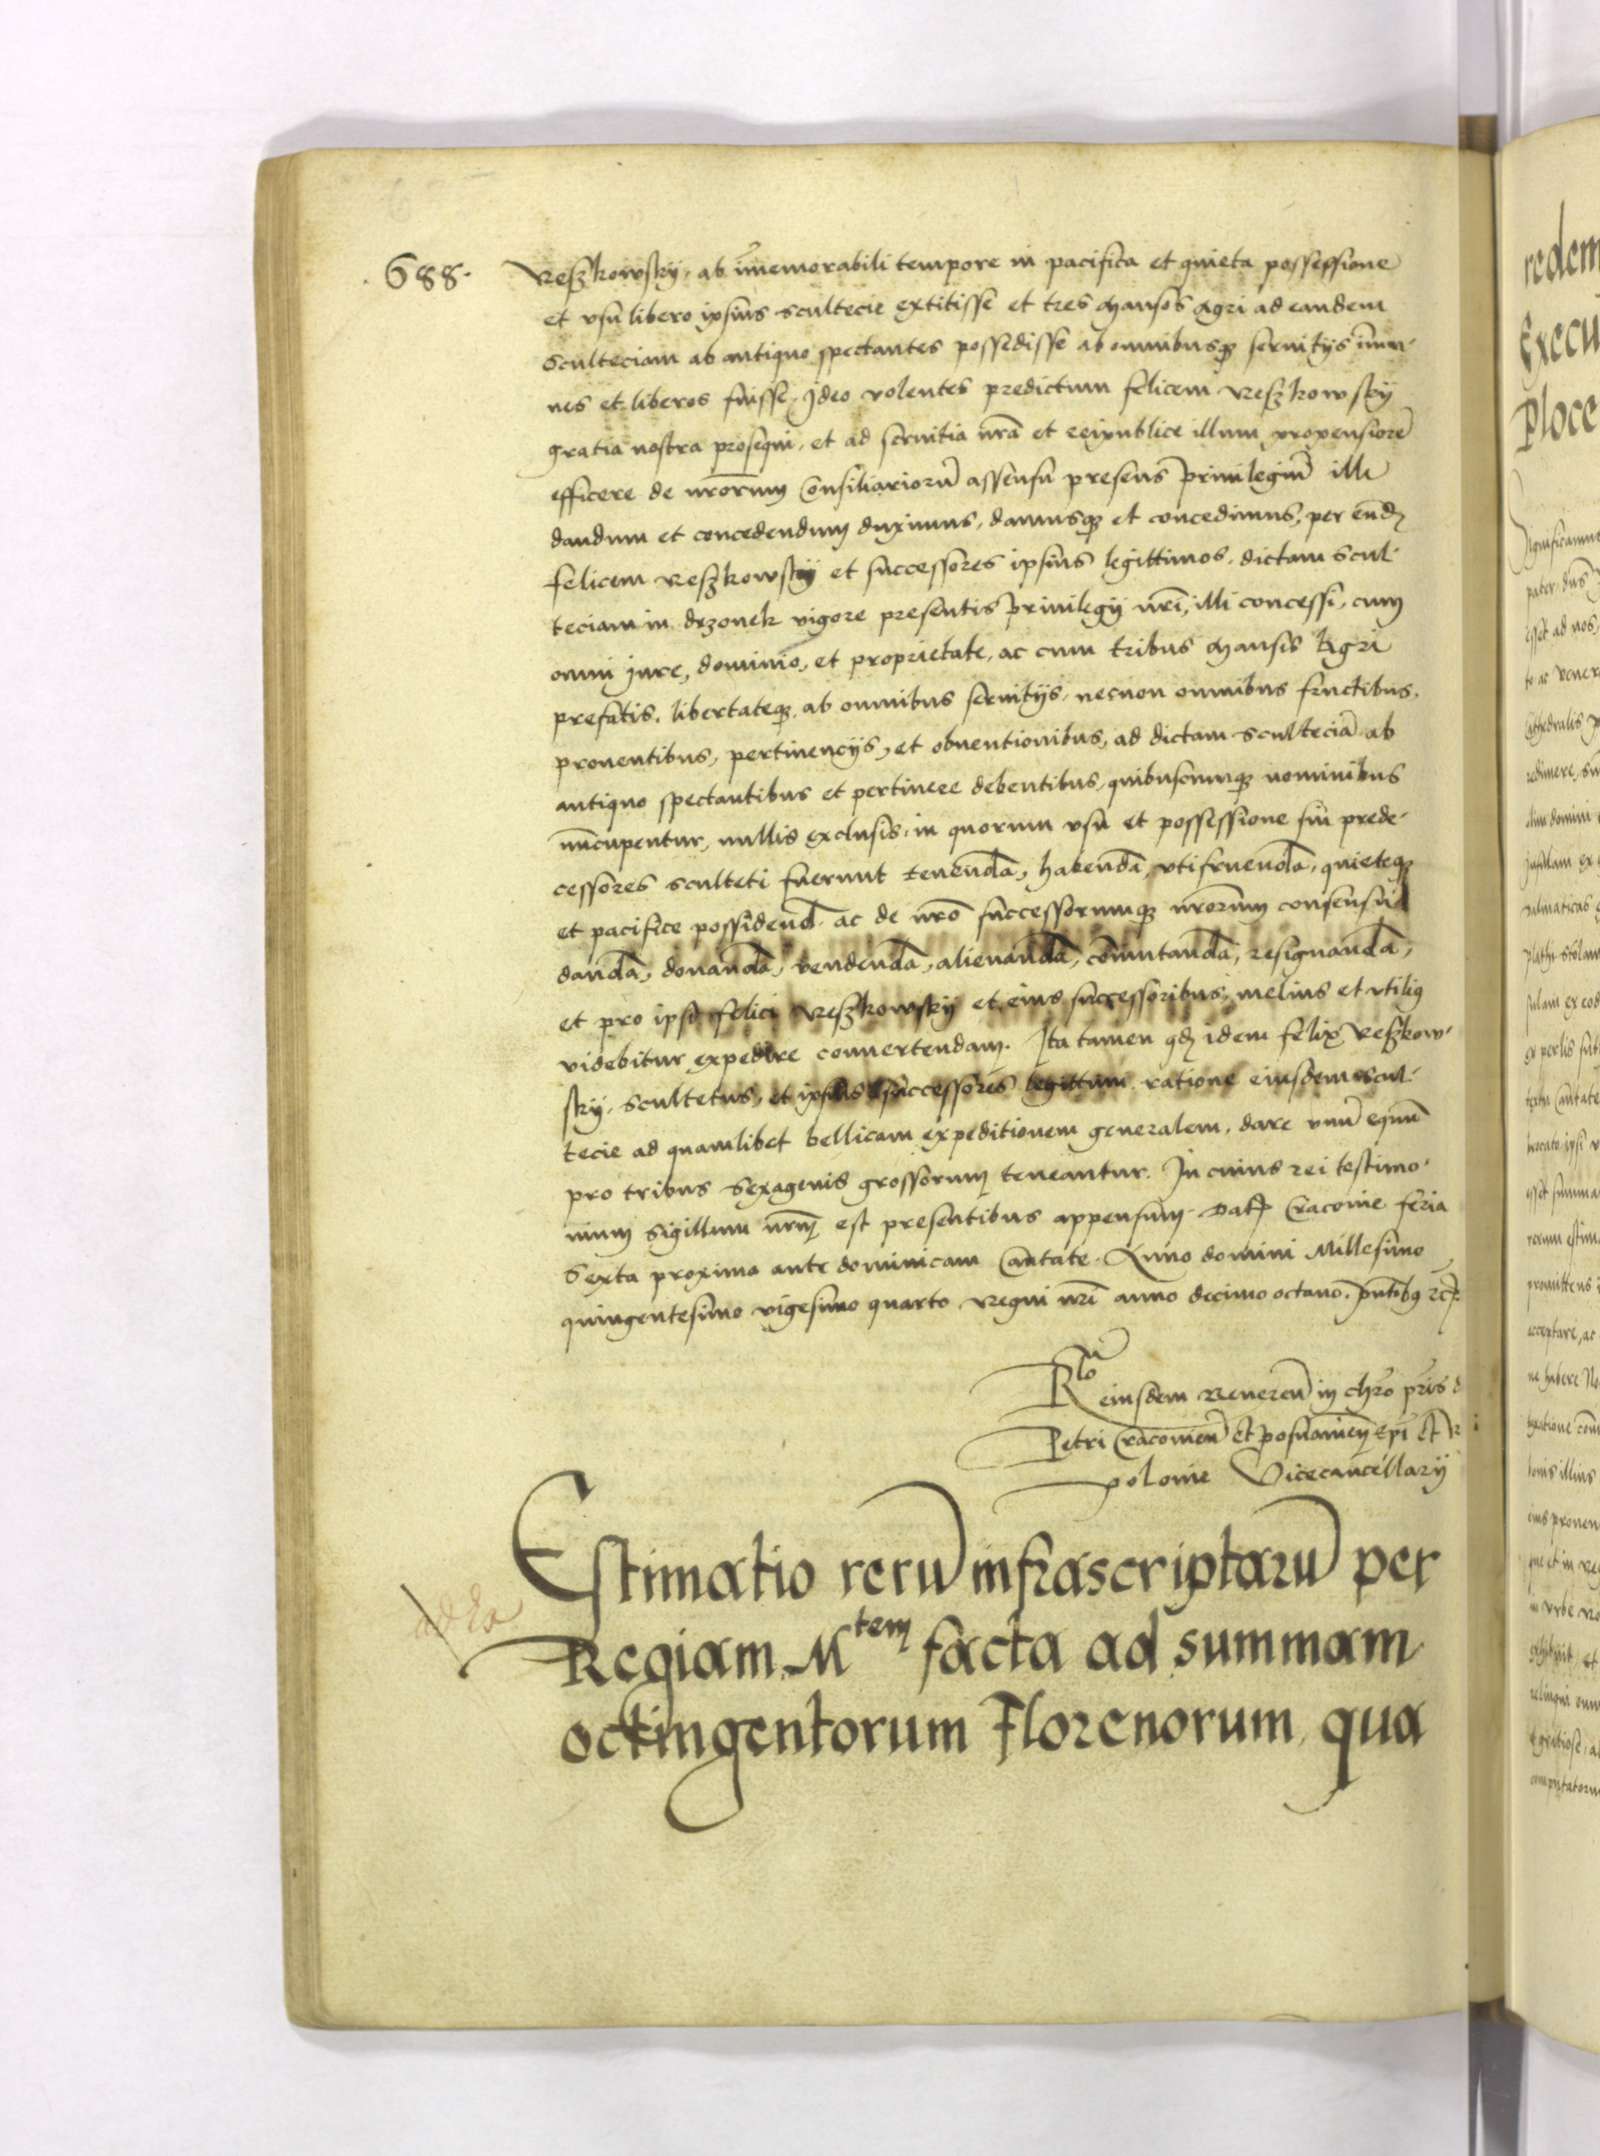 .688.
Reszkowsky, ab ĩmemorabili tempore in pacifica et quieta possessione
et vsu libero ipsius scultecie extitisse et tres Mansos Agri ad eandem
Sculteciam ab antiquo spectantes possedisse ab omnibusq3 seruitijs ĩmu-
nes et liberos fuisse. Ideo volentes predictum felicem Reszkowsky
gratia nostra prosequi, et ad seruitia nr̃a et reipublice illum propensiorẽ
efficere de nr̃orum Consiliariorũ assensu presens priuilegiũ illi
dandum et concedendum duximus, damusq3 et concedimus, per eund̃
felicem Reszkowsky et successores ipsius legittimos, dictam scul-
teciam in drzonek vigore presentis priuilegij nr̃i, illi concessi, cum
omni iure, dominio, et proprietate, ac cum tribus Mansis Agri
prefatis, libertateq3, ab omnibus seruitijs, necnon omnibus fructibus,
prouentibus, pertinencijs, et obuentionibus, ad dictam sculteciã ab
antiquo spectantibus et pertinere debentibus, quibuscumq3 nominibus
nũcupentur, nullis exclusis, in quorum vsu et possessione sui prede-
cessores sculteti fuerunt tenend̃a, habend̃a, vtifruend̃a, quieteq3
et pacifice possidend̃ ac de nr̃o successorumq3 nr̃orum consensu
dand̃a, donand̃a, vendend̃a, alienand̃a, cõmutand̃a, resignand̃a,
et pro ipso felici Reszkowsky et eius successoribus, melius et vtilius
videbitur expedire conuertendam. Ita tamen qd̃ idem felix Reszkow-
sky, scultetus, et ipsius successores legittimi ratione eiusdem scul-
tecie ad quamlibet bellicam expeditionem generalem, dare vnũ equũ
pro tribus Sexagenis grossorum teneantur. In cuius rei testimo-
nium Sigillum nr̃m est presentibus appensum. Dat̃ Cracouie feria
Sexta proxima ante dominicam Cantate. Anno domini Millesimo
quingentesimo vigesimo quarto Regni nr̃i anno decimo octauo. pñtibus etc̃.
Rlo eiusdem Reuerend̃ in chr̃o pr̃is d
Petri Cracouien̄ et posnanien̄ Ep̃i et R
polonie Vicecancellarij
Estimatio rerũ infrascriptarũ per
Regiam Mtem facta ad summam
octingentorum Florenorum, qua